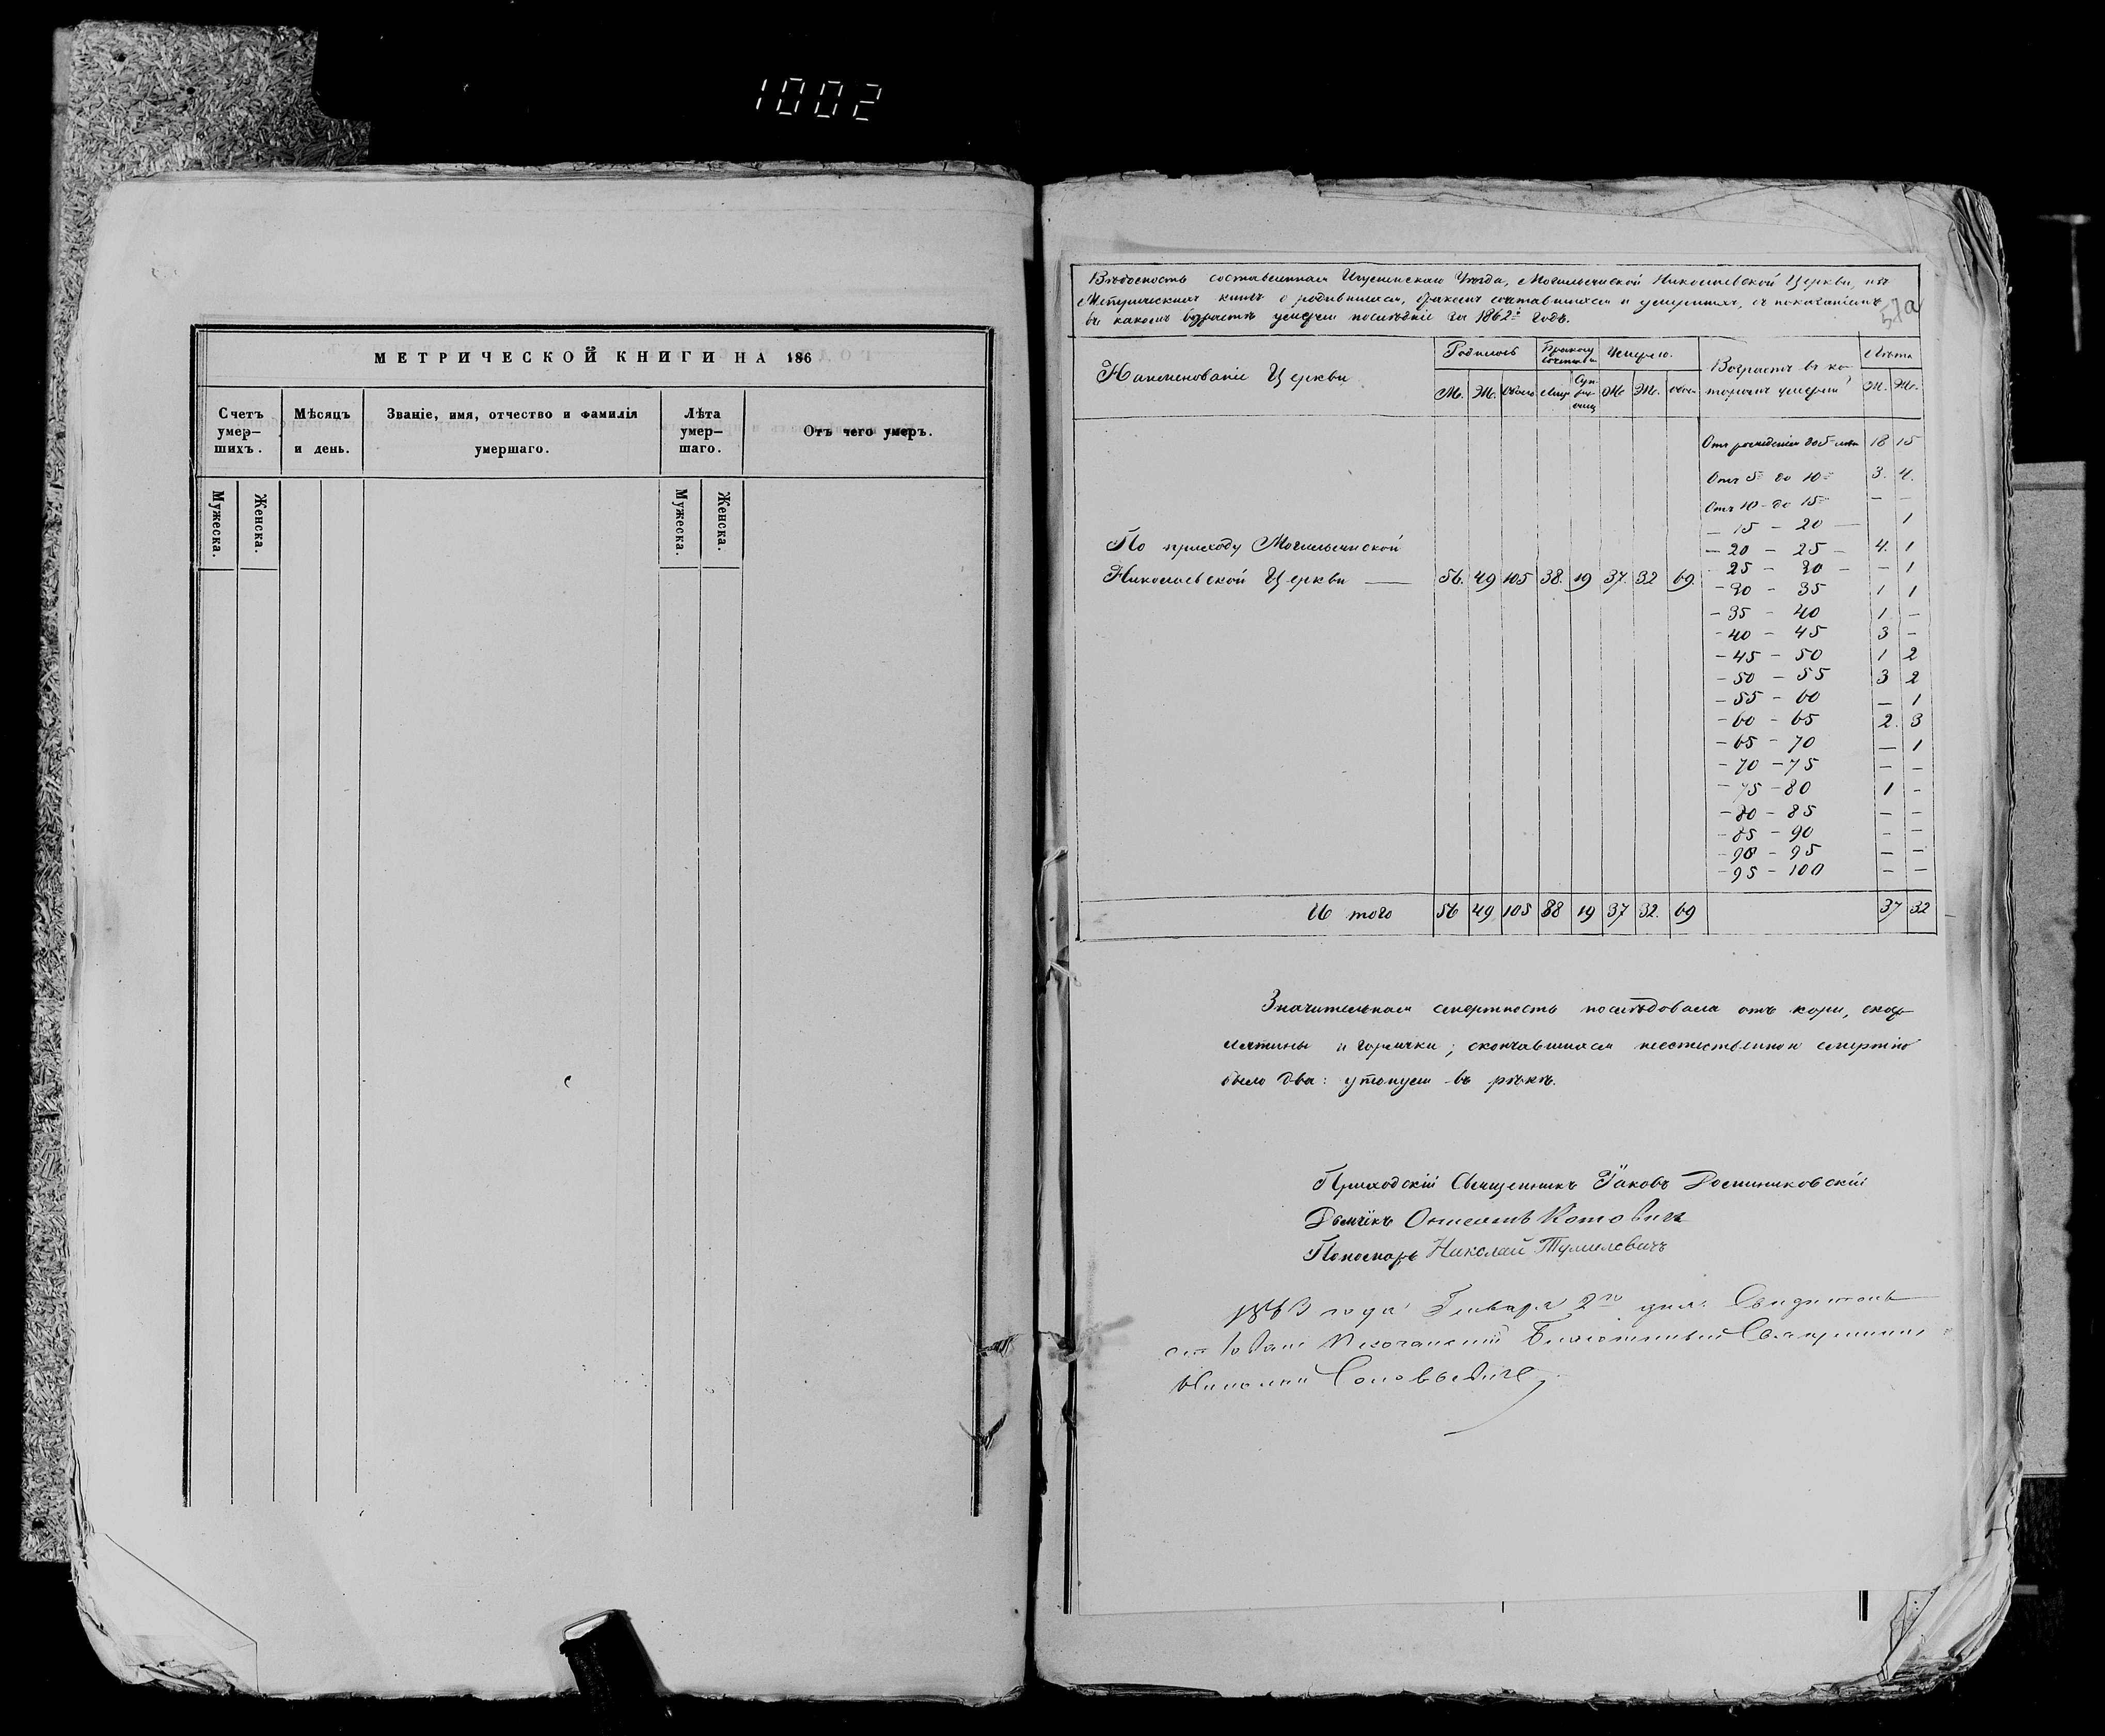 1002
МЕТРИЧЕСКОЙ КНИГИ НА 186
Счетъ умер— шихъ.
Мѣсяцъ и день.
Званіе, имя, отчество и фамилія умершаго.
Лѣта умер— шаго.
Отъ чего умеръ.
Мужеска.
Женска.
Мужеска.
Женска.
Вѣдомость составленная Игуменскаго Уѣзда, Могильянской Николаевской Церкви, изъ
Метрическихъ книгъ о родившихся, бракомъ сочетавшихся и умершихъ, съ показаніемъ
въ какомъ возрастѣ умерли послѣдніе за 1862й годъ.
51а
Наименованіе Церкви
Родилось
Бракомъ
Умерло.
Возрастъ въ ко-
торомъ умерли
Лѣта
М. Ж. Обоего
М. Ж. обоего
М. Ж.
Отъ рожденія до 5 лѣтъ 18 15
Отъ 5 до 10 3. 4.
Отъ 10 - до 15 — —
— 15 — 20 — 1
— 20 — 25 — 4. 1
25 — 30 — — 1
- 30 — 35 1 1
- 35 - 40 1 —
- 40 - 45 3 -
- 45 - 50 1 2
- 50 - 55 3 2
- 55 - 60 — 1
- 60 - 65 2. 3
- 65 - 70 — 1
- 70 - 75 — —
- 75 - 80 1 -
- 80 - 85 — —
- 85 - 90 - -
- 90 - 95 — —
- 95 - 100 - —
По приходу Могильянской
Николаевской Церкви — 56. 49 105 38. 19 37. 32 69.
И того 56 49 105 38 19 37 32. 69 37 32
Значительная смертность послѣдовала отъ кори, скар-
латины и горячки; скончавшихся неестественною смертію
было два: утонули въ рѣкѣ.
Приходскій Священникъ Іаковъ Доминиковскій
Дьячокъ Котовичъ
Пономарь Николай Тумиловичъ
1863 года Января 2го дня.
Николай